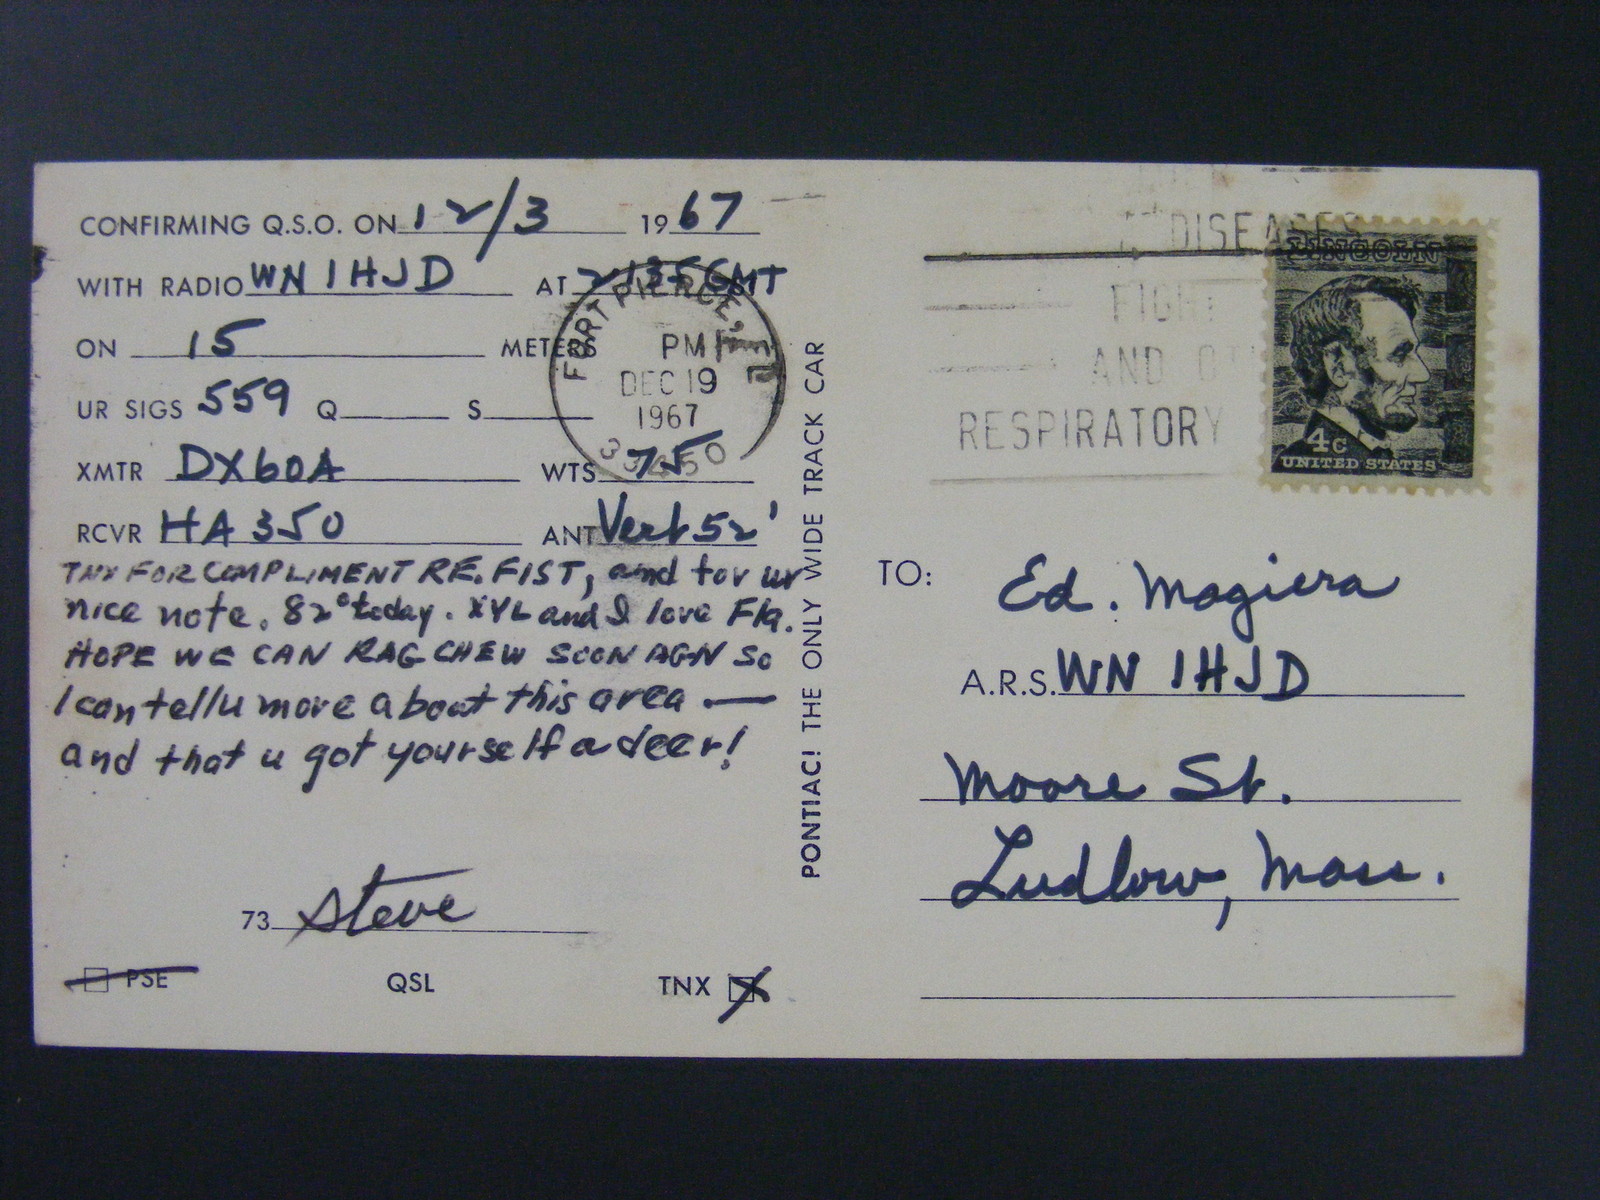 CONFIRMING Q.S.O. ON 12/3 1967
WITH RADIO WN1HJD AT 2135 GMT
ON 15 METERS
UR SIGS 559 Q S
XMTR DX60A WTS 75
RCVR HA 350 ANT Vert 52'
TNX FOR COMPLIMENT RE. FIST, and for ur
nice note. 82° today. XYL and I love Fla.
HOPE WE CAN RAG CHEW SOON AGN SO
I can tell u more about this area —
and that u got yourself a deer!
73 Steve
PSE QSL TNX
FORT PIERCE,
PM
DEC 19
1967
PONTIAC! THE ONLY WIDE TRACK CAR
DISEASES
FIGHT
AND OT
RESPIRATORY
LINCOLN
4c
UNITED STATES
TO: Ed. Magiera
A.R.S. WN1HJD
Moore St.
Ludlow, Mass.